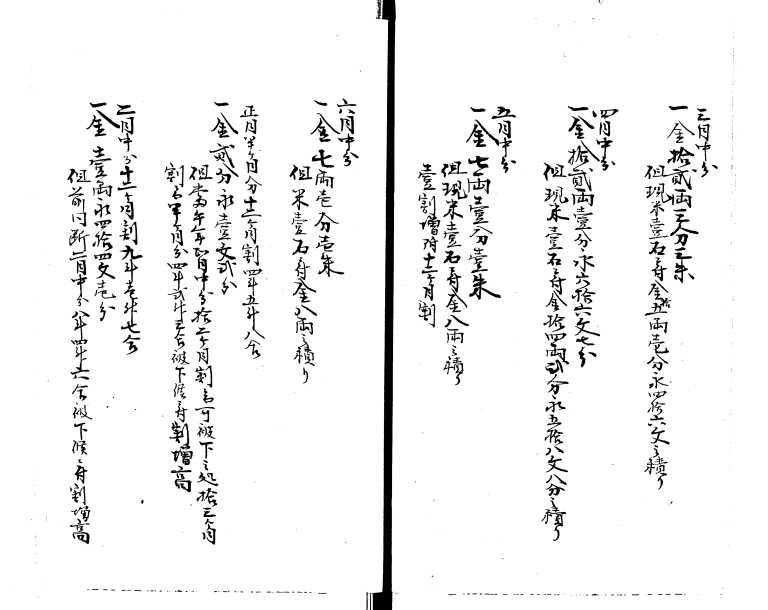 三月中分
一金拾貳両三分三朱
但現米壹石ニ付金拾五両壱分永四拾六文之積り
四月中分
一金拾貳両壹分永六拾六文七分
但現米壹石ニ付金拾四両弐分永五拾八文八分之積り
五月中分
一金七両壹分壹朱
但現米壹石ニ付金八両之積り
壹割増附十二ヶ月割
六月中分
一金七両壱分壱朱
但米壹石ニ付金八両之積り
正月半ヶ月分十二ヶ月割四斗五升八合
一金貳分永壹文弐分
但当午年正月中分拾二ヶ月割ニ而可被下之処拾三ヶ月
割ニ而半ヶ月分四斗弐升三合被下候ニ付割増高
二月中分十二ヶ月割九斗壱升七合
一金壹両永四拾四文壱分
但前同断二月中分八斗四升六合被下候ニ付割増高